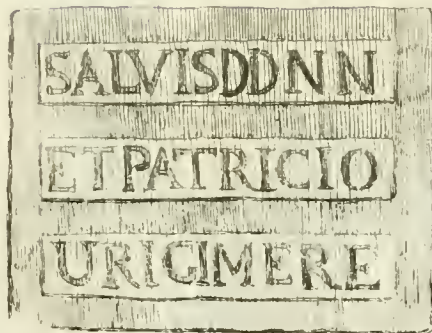 SALVISDDNN
ETPATRICIO
URICIMERE